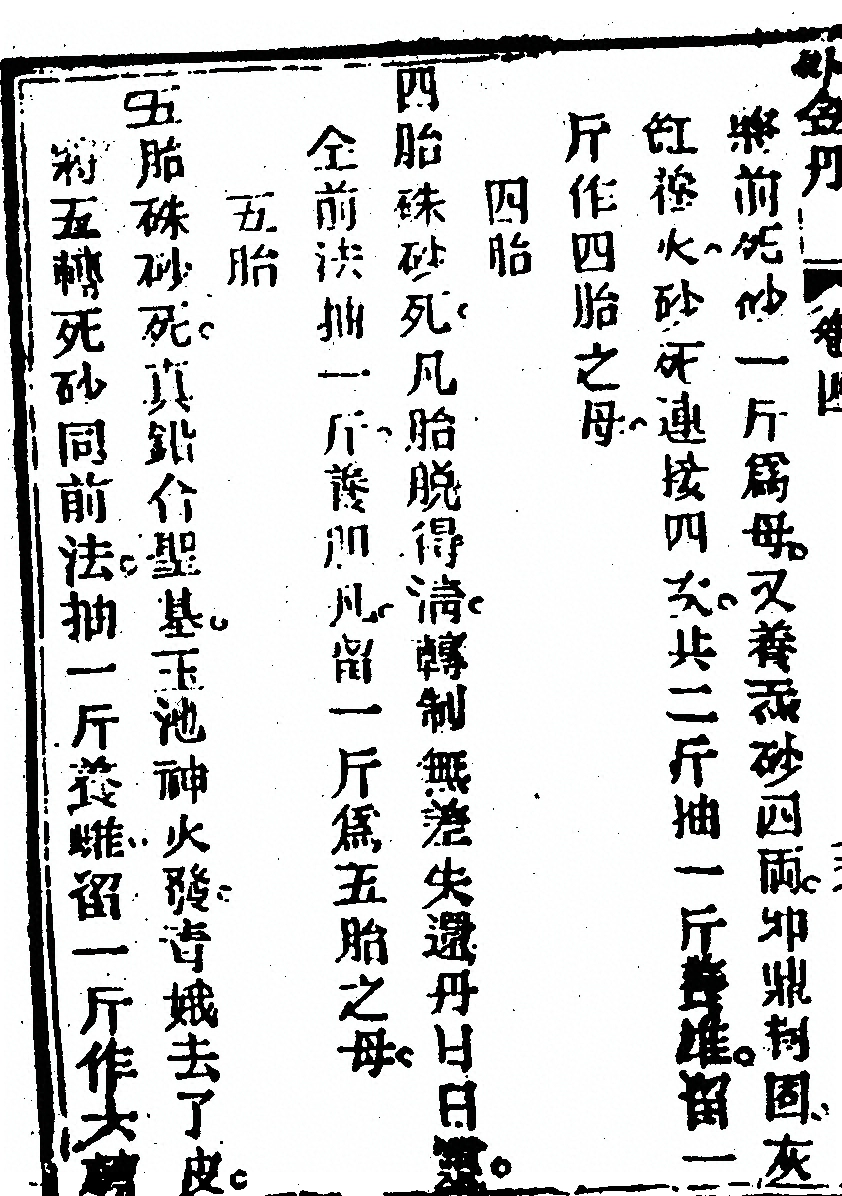 金丹 卷四
將前死砂一斤為母又養汞砂四兩卯鼎封固灰
缸穆火砂死連接四次共二斤抽一斤養雄留一
斤作四胎之母
四胎
四胎硃砂死凡胎脫得清轉制無差失還丹日日
仝前法抽一斤養凡留一斤為五胎之母
五胎
五胎硃砂死真鉛介聖基玉池神火發青娥去了皮
將五轉死砂同前法抽一斤養雌留一斤作大轉